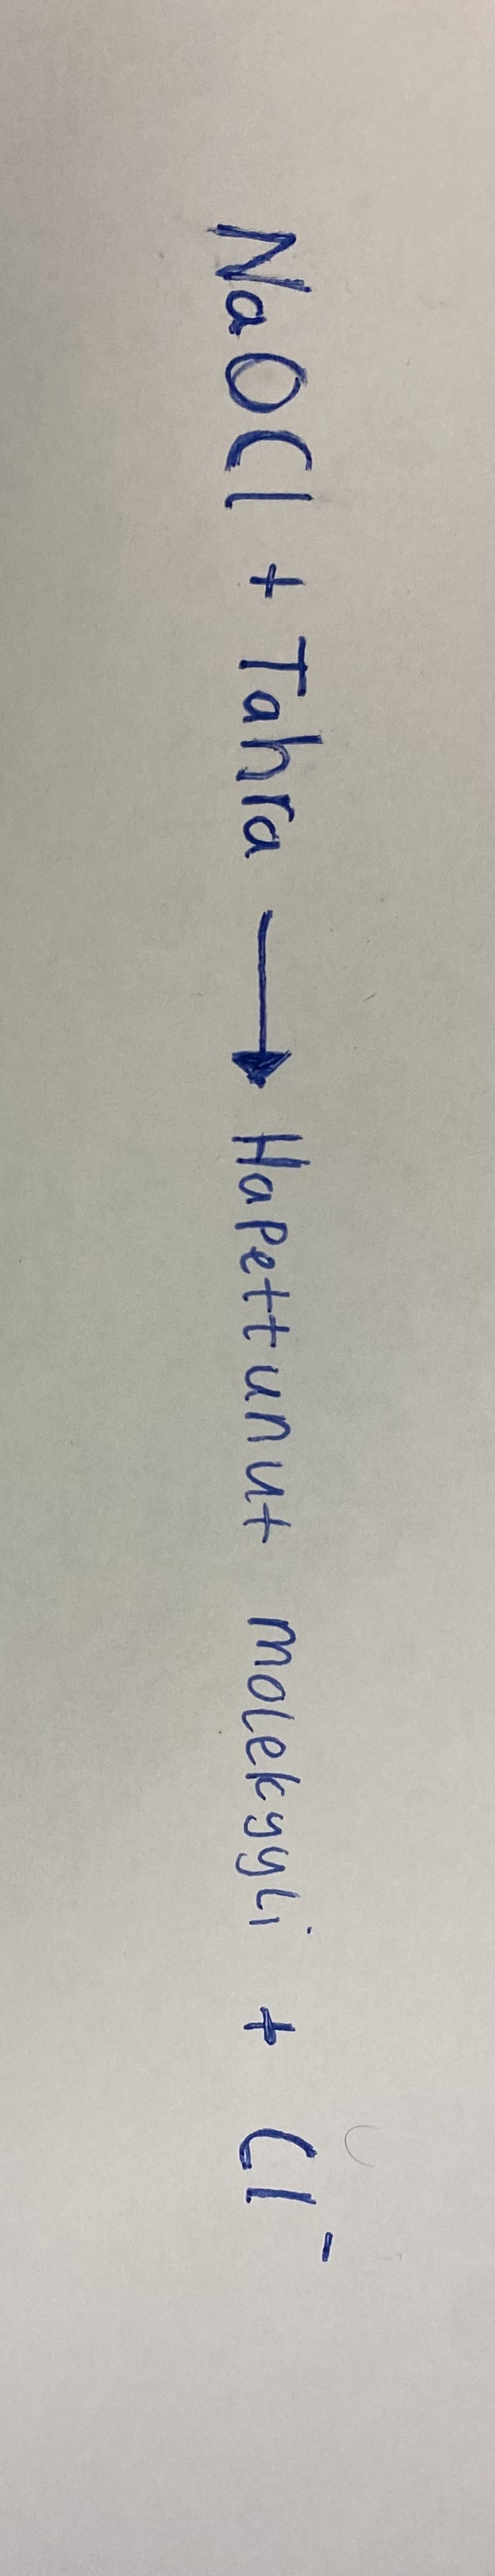 NaOCl + Tahra → Hapettunut molekyyli + Cl⁻